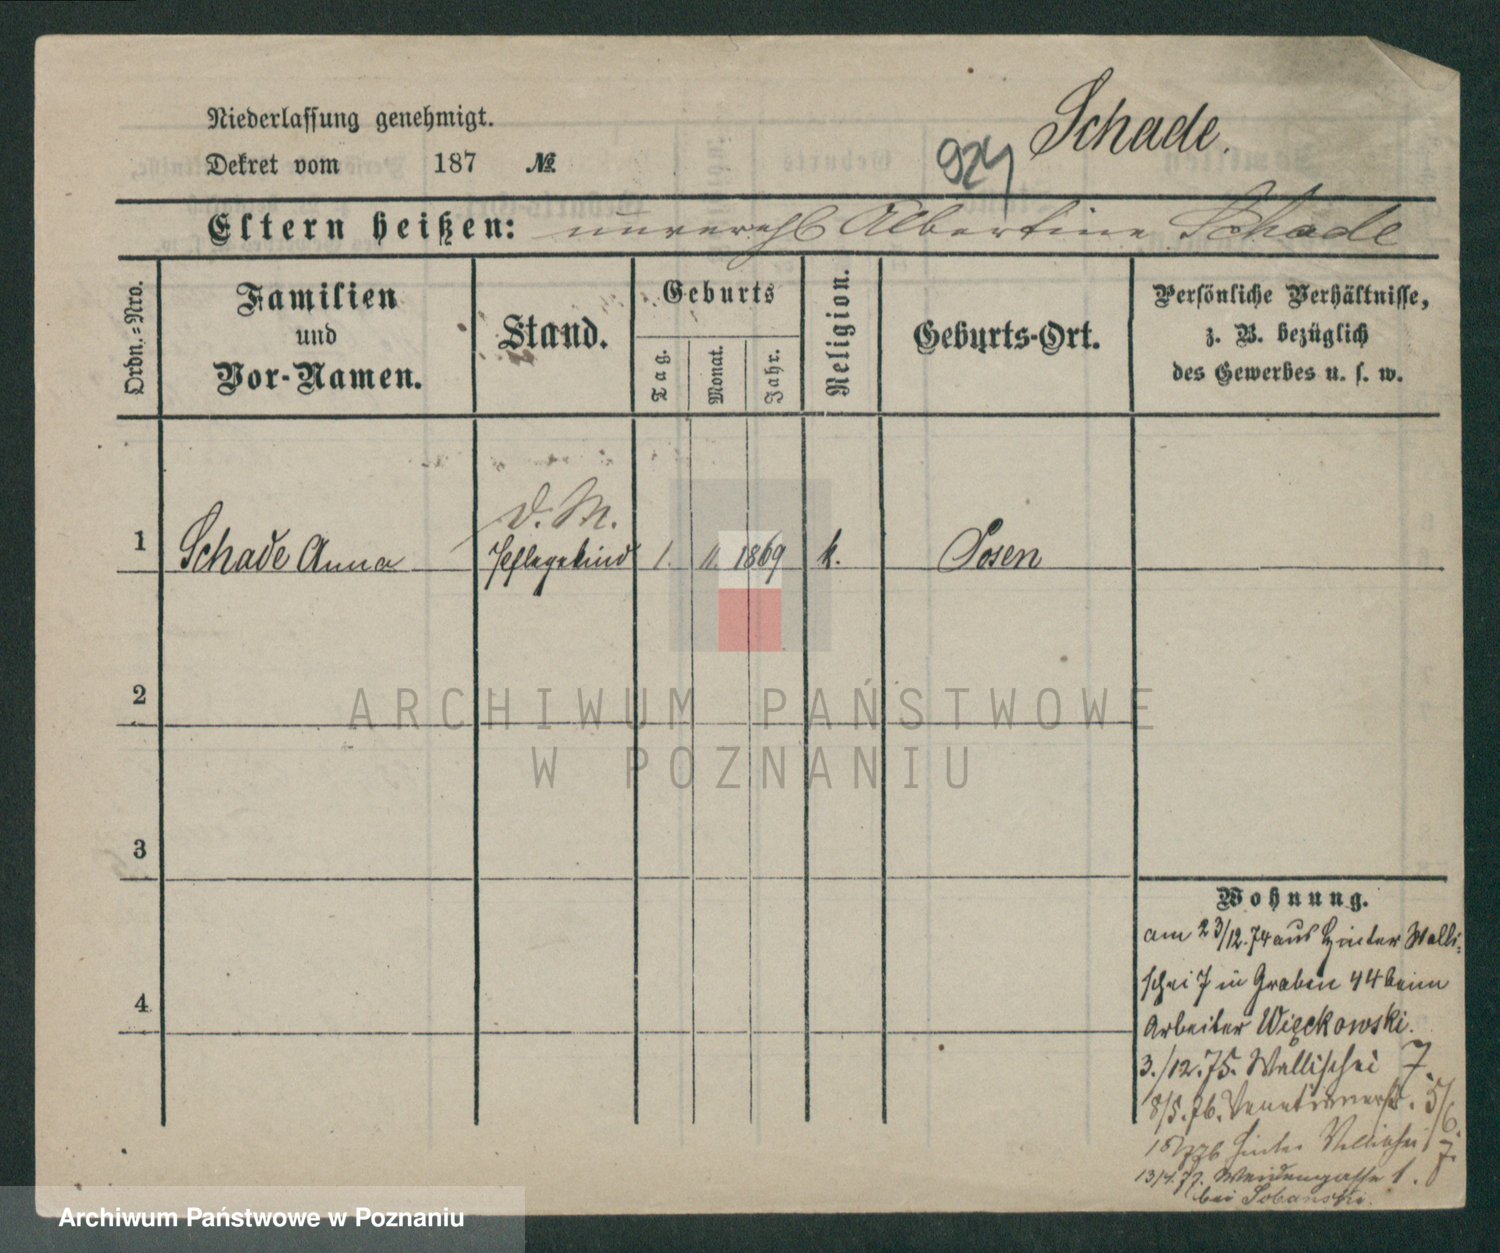 Schade.
Niederlassung genehmigt.
Dekret vom 187 №
924
Eltern heißen: unverehl Albertine Schade
Ordn.-Nro.
Familien
und
Vor-Namen.
Stand.
Geburts
Tag.
Monat.
Jahr.
Religion.
Geburts-Ort.
Persönliche Verhältnisse,
z. B. bezüglich
des Gewerbes u. s. w.
d. M.
1 Schade Anna Pflegekind 1. 11. 1869 k. Posen
2
3
4
Wohnung.
am 23/12.74 aus Hinter Walli-
schei 7 in Graben 44 beim
Arbeiter Więckowski.
3./12.75. Wallischei 7.
8/5.76. Venetianerstr. 5/6.
Hinter Wallischei 7.
13/4.77. Weidengasse 1.
bei Sobanski.
ARCHIWUM PAŃSTWOWE
W POZNANIU
Archiwum Państwowe w Poznaniu